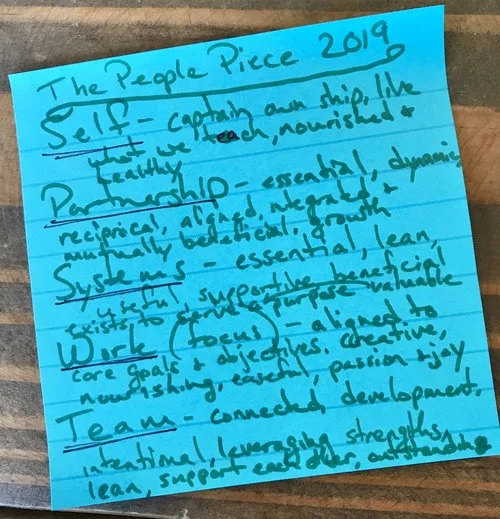 The People Piece 2019
Self - captain own ship, like
what we teach, nourished +
healthy
Partnership - essential, dynamic,
reciprical, aligned, integrated +
mutually beneficial, growth
Systems - essential, lean,
useful supportive beneficial
exists to serve a purpose valuable
Work (focus) - aligned to
core goals + objectives. creative,
nourishing, easeful, passion + joy
Team - connected, development,
intentional, leveraging strengths,
lean, support each other, outstanding